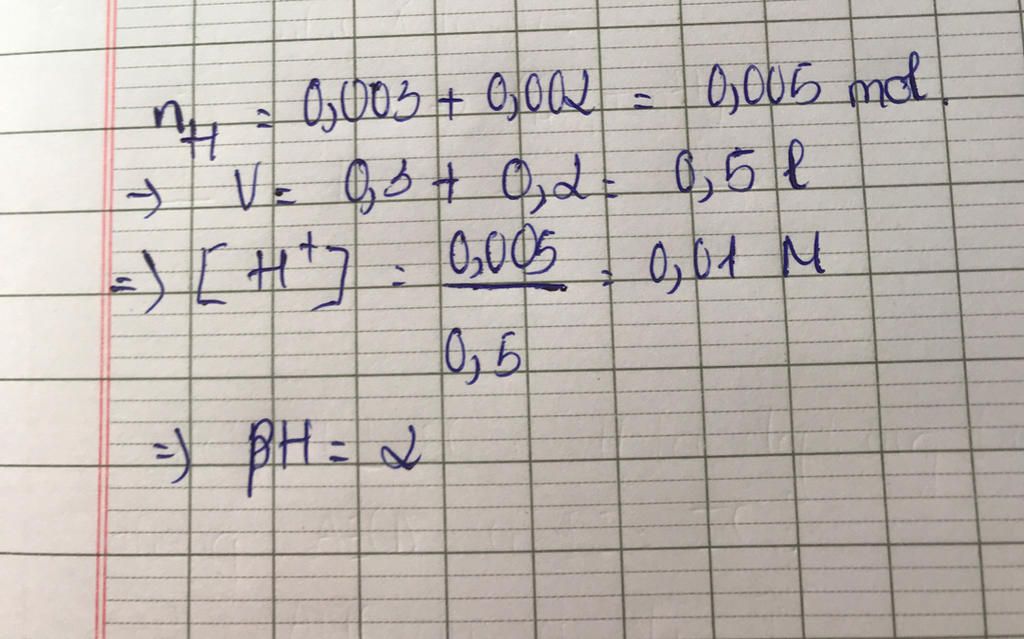 n_H = 0,003 + 0,002 = 0,005 mol.
→ V = 0,3 + 0,2 = 0,5 l
=) [H⁺] = 0,005 / 0,5 = 0,01 M
=) pH = 2